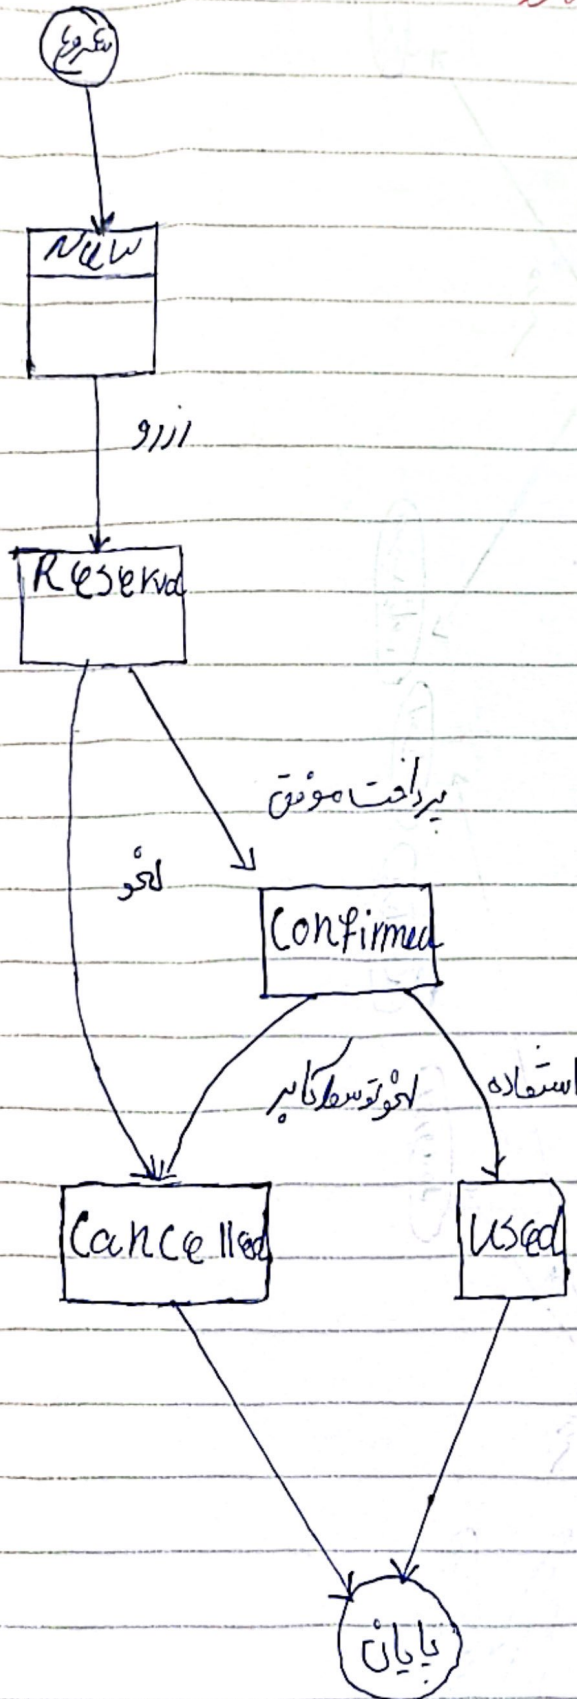 شروع
New
ازرو
Reserved
پرداخت موفق
لغو
Confirmed
لغو توسط کاربر
استفاده
Cancelled
Used
پایان